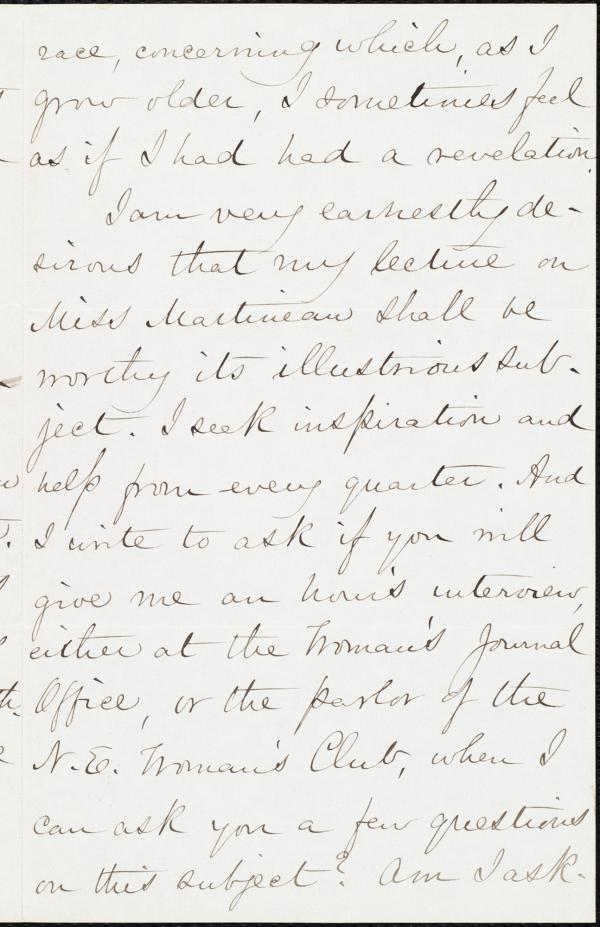 race, concerning which, as I
grow older, I sometimes feel
as if I had had a revelation.
I am very earnestly de-
sirous that my lecture on
Miss Martineau shall be
worthy its illustrious sub-
ject. I seek inspiration and
help from every quarter. And
I write to ask if you will
give me an hour's interview,
either at the Woman's Journal
Office, or the parlor of the
N.E. Woman's Club, when I
can ask you a few questions
on this subject? Am I ask-